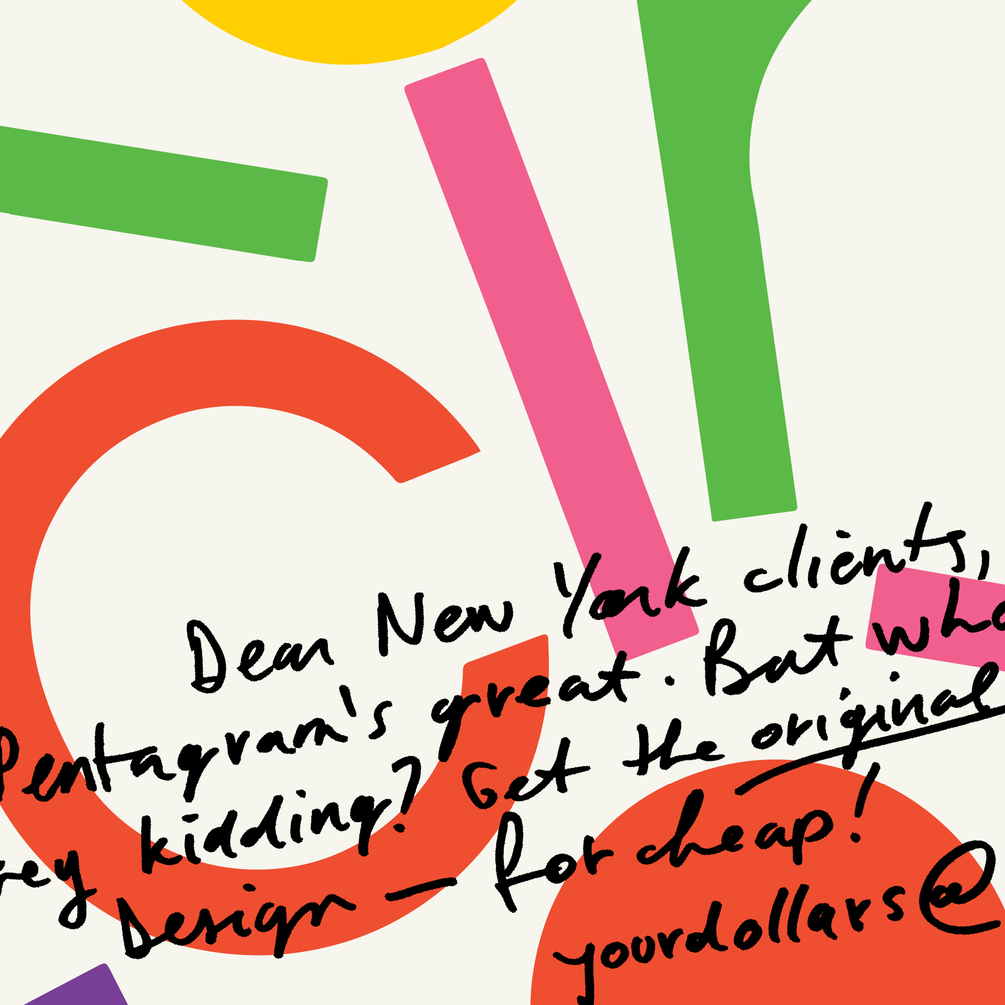 Dear New York clients,
Pentagram's great. But who
rey kidding? Get the original
Design — for cheap!
yourdollars@